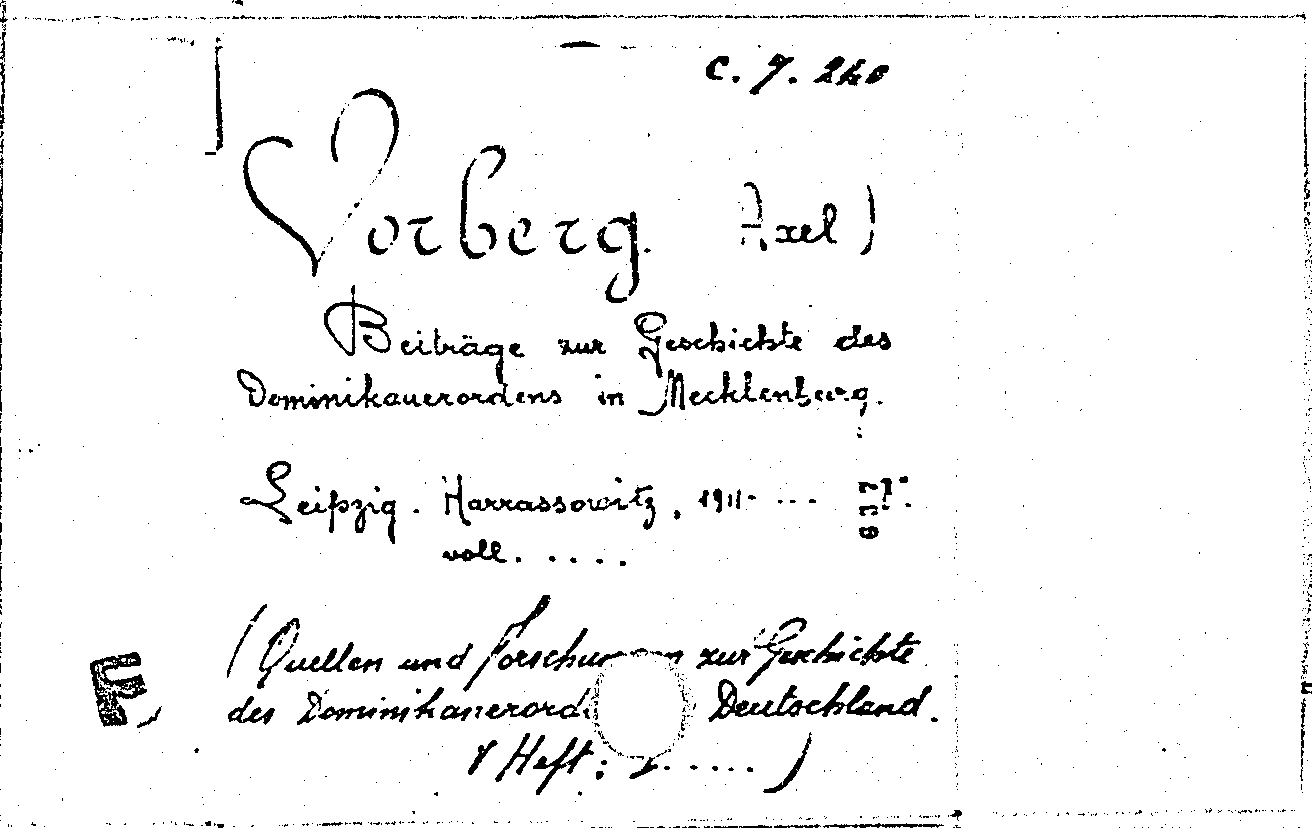 C. 7. 240
Vorberg. Axel)
Beiträge zur Geschichte des
Dominikanerordens in Mecklenburg.
Leipzig. Harrassowitz, 1911. ...
voll. . . . .
(Quellen und Forschungen zur Geschichte
des Dominikanerord Deutschland.
Heft: 5 . . . . . )
F